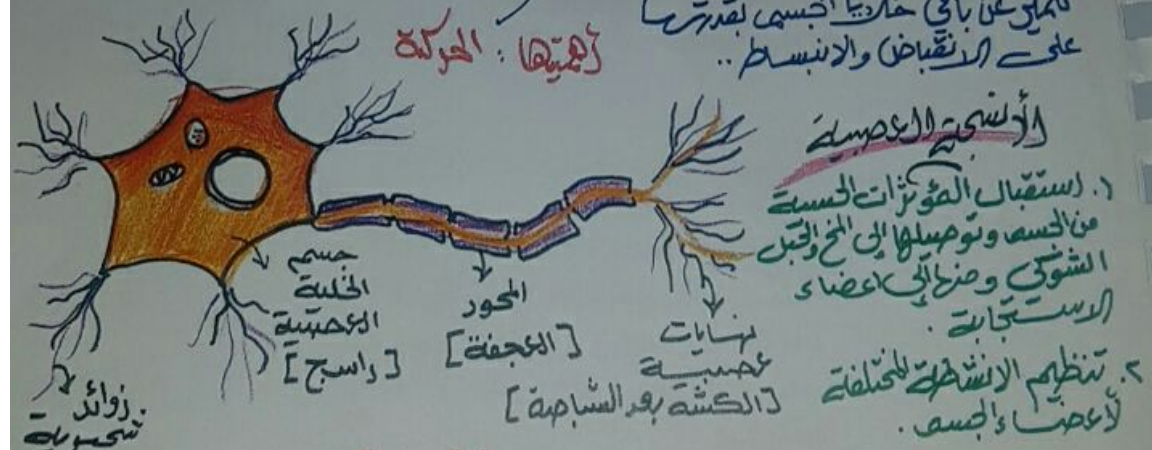 تتميز عن باقي خلايا الجسم بقدرتها
على الانقباض والانبساط..
أهميتها: الحركة
الأنسجة العصبية
١. استقبال المؤثرات الحسية
من الجسم وتوصيلها إلى المخ والحبل
الشوكي ومنها إلى اعضاء
الاستجابة.
٢. تنظيم الانشطة المختلفة
لأعضاء الجسم.
جسم
الخلية
العصبية
[راسج]
المحور
[العجفة]
نهايات
عصبية
[الكشه بعد الشاصة]
زوائد
شجيرية